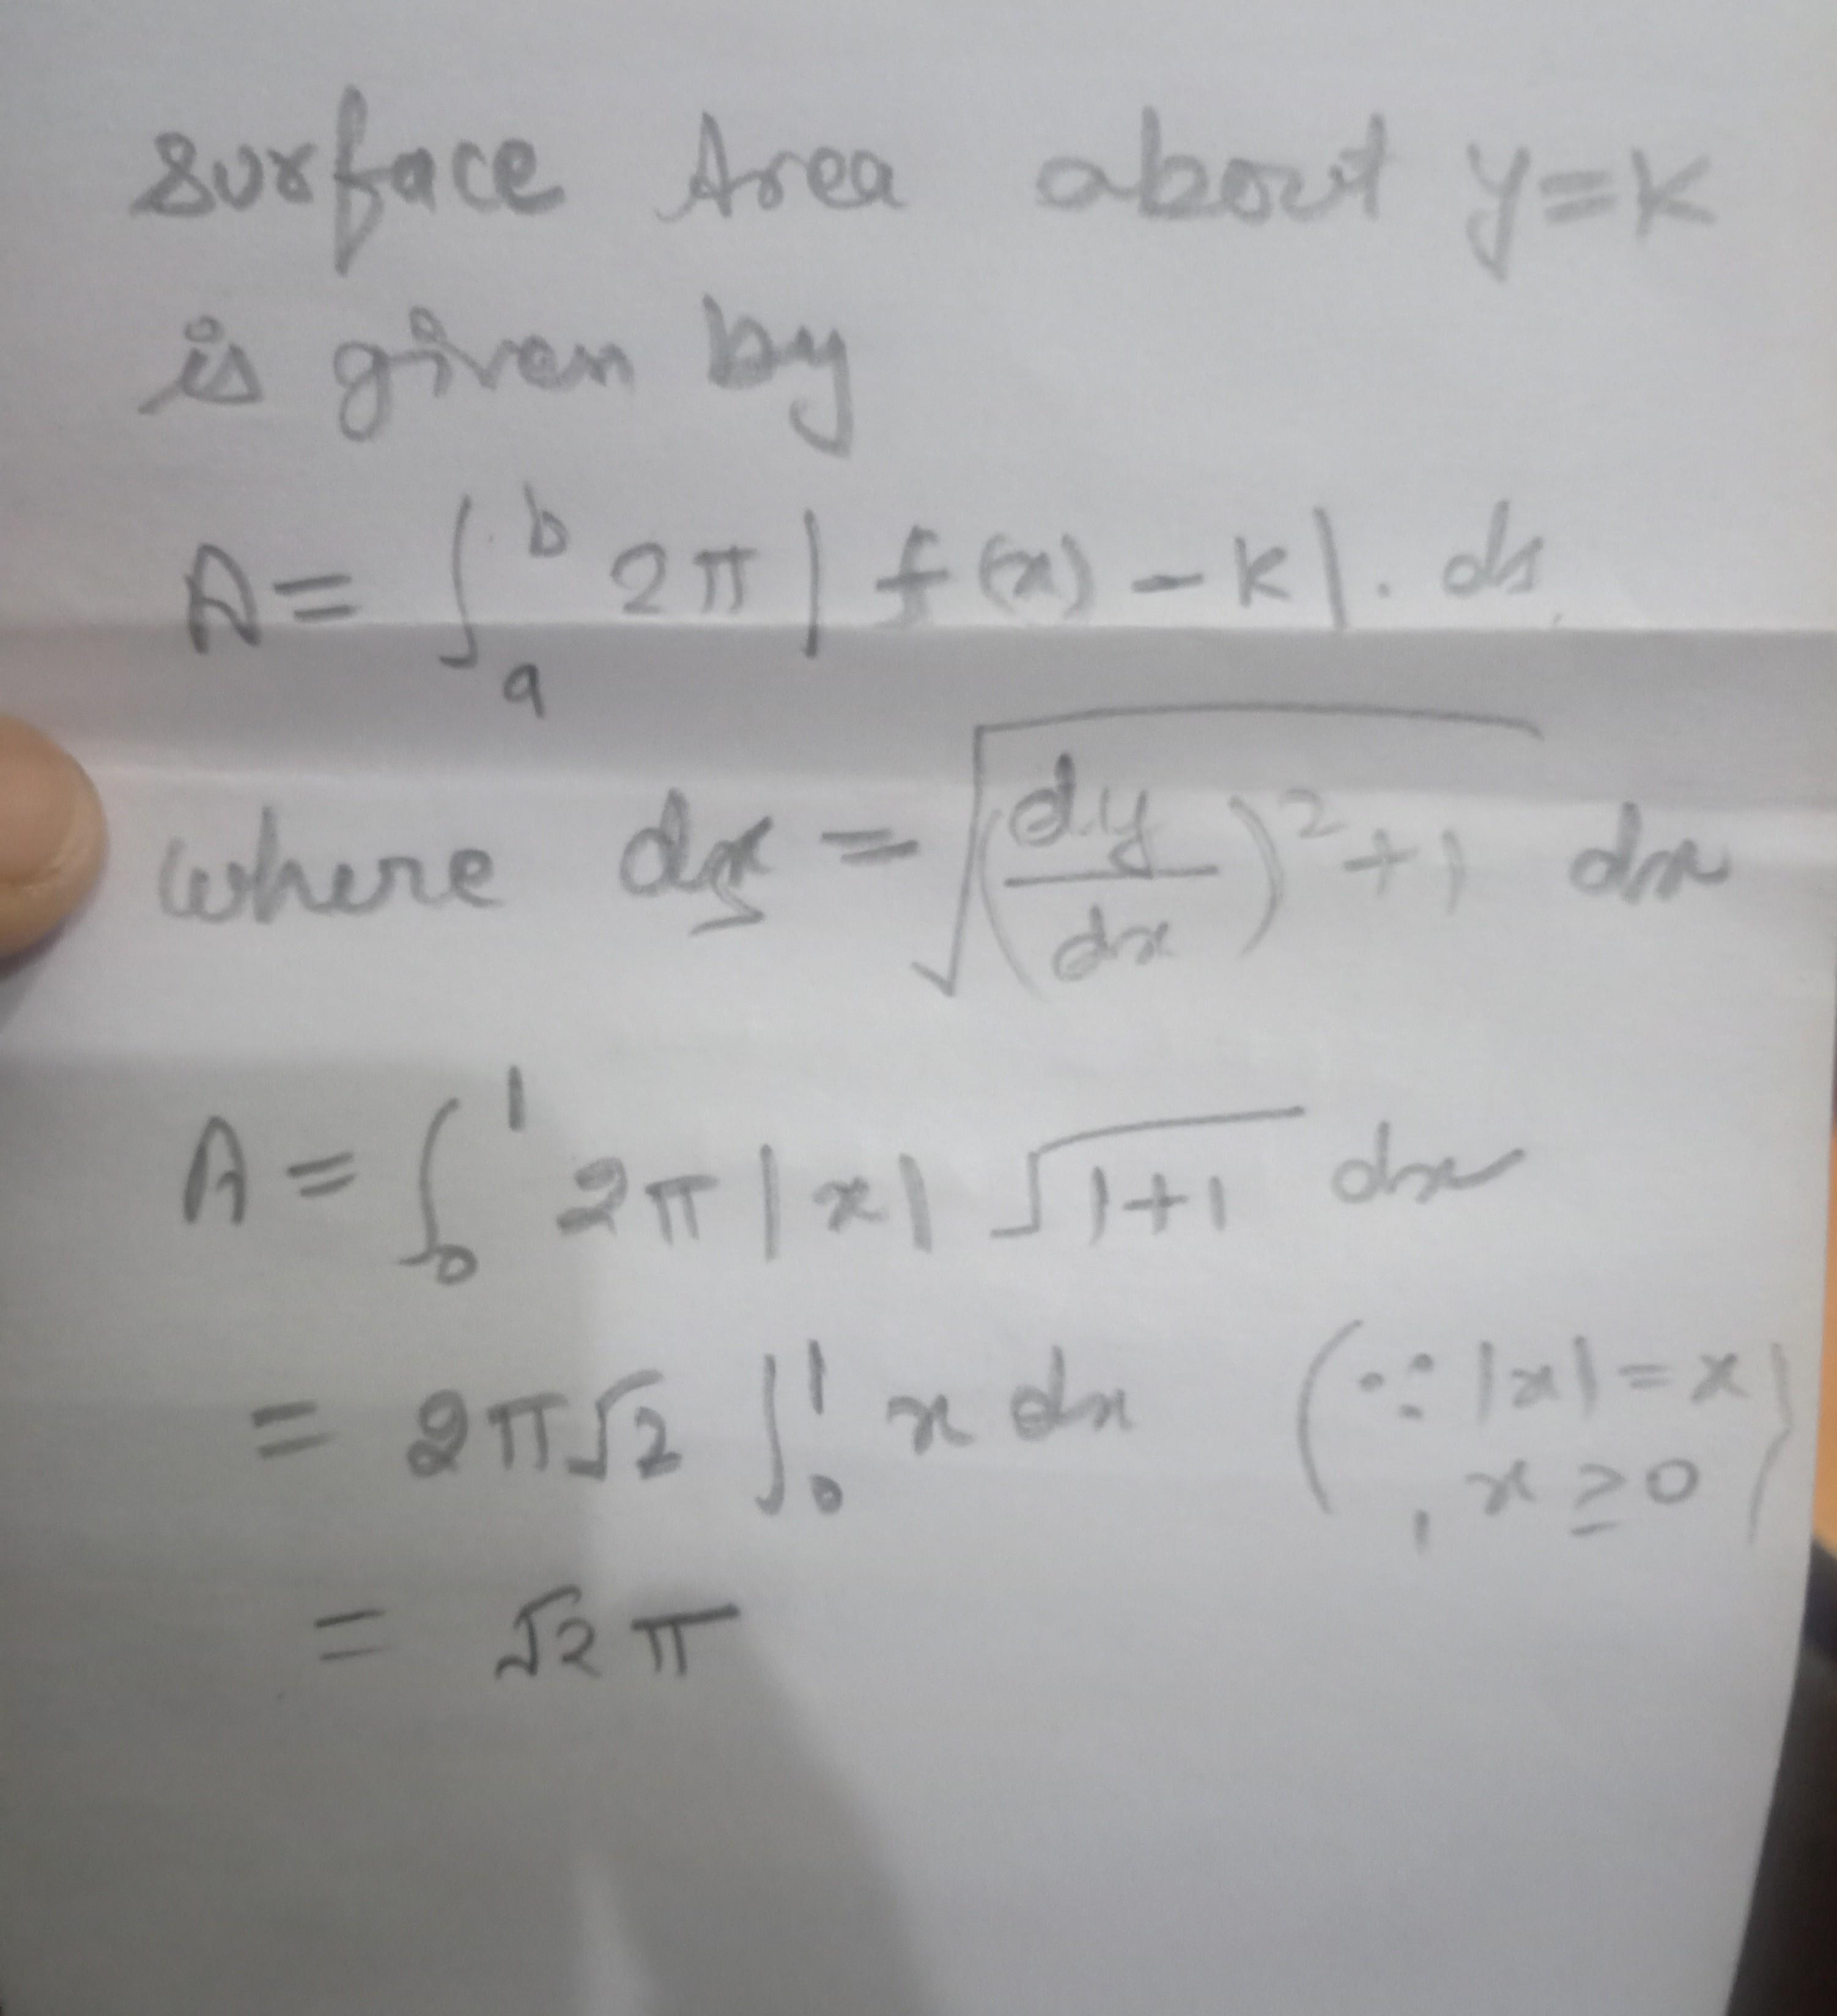 Surface Area about y=K
is given by
A = ∫_a^b 2π | f(x) - K | . ds
where ds = √((dy/dx)² + 1) dx
A = ∫_0^1 2π |x| √(1+1) dx
= 2π√2 ∫_0^1 x dx (∵ |x| = x
, x ≥ 0)
= √2 π